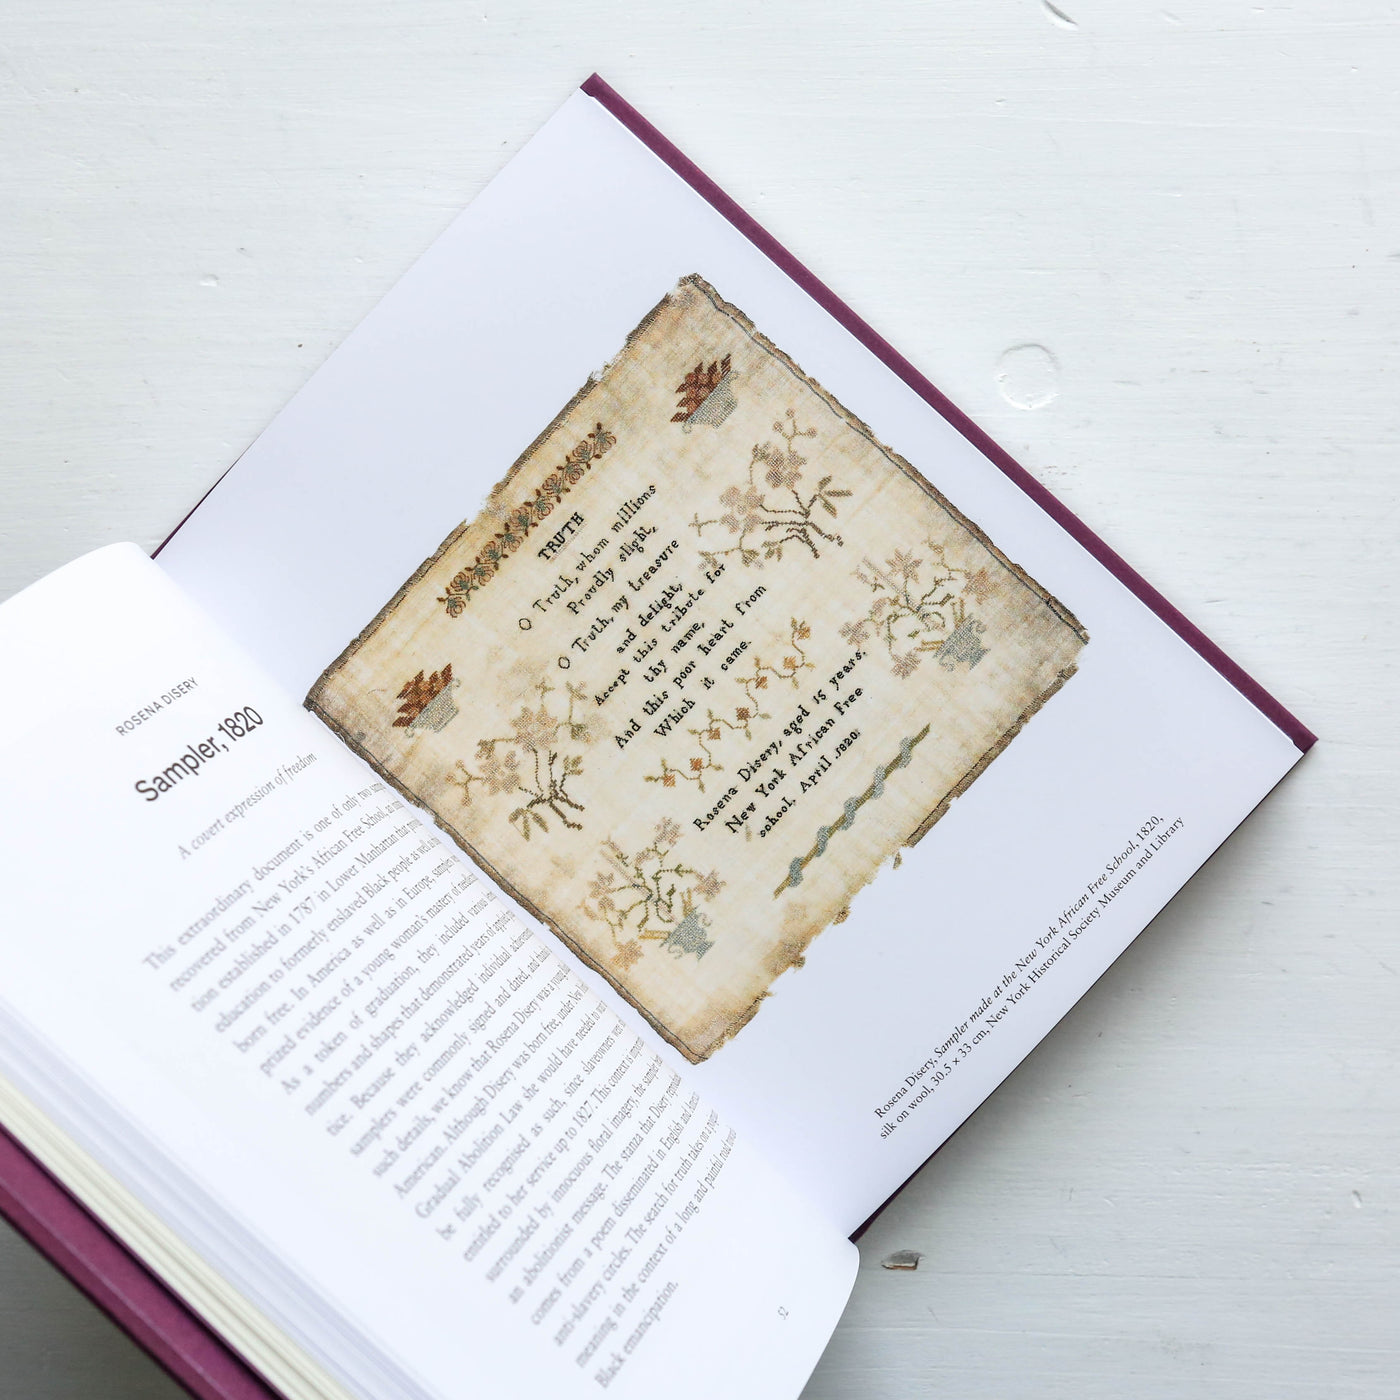 ROSENA DISERY
Sampler, 1820
A covert expression of freedom
This extraordinary document is one of only two
recovered from New York's African Free School, an
tion established in 1787 in Lower Manhattan that
education to formerly enslaved Black people as well as
born free. In America as well as in Europe, samplers
prized evidence of a young woman's mastery of
As a token of graduation, they included various
numbers and shapes that demonstrated years of
tice. Because they acknowledged individual
samplers were commonly signed and dated, and
such details, we know that Rosena Disery was a
American. Although Disery was born free, under New
Gradual Abolition Law she would have needed to
be fully recognised as such, since slaveowners were
entitled to her service up to 1827. This context is
surrounded by innocuous floral imagery, the sampler
an abolitionist message. The stanza that Disery
comes from a poem disseminated in English and
anti-slavery circles. The search for truth takes on a
meaning in the context of a long and painful road
Black emancipation.
52
TRUTH
O Truth, whom millions
Proudly slight,
O Truth, my treasure
and delight,
Accept this tribute for
thy name,
And this poor heart from
Which it came.
Rosena Disery, aged 15 years.
New York African Free
school, April .1820.
Rosena Disery, Sampler made at the New York African Free School, 1820,
silk on wool, 30.5 × 33 cm, New York Historical Society Museum and Library